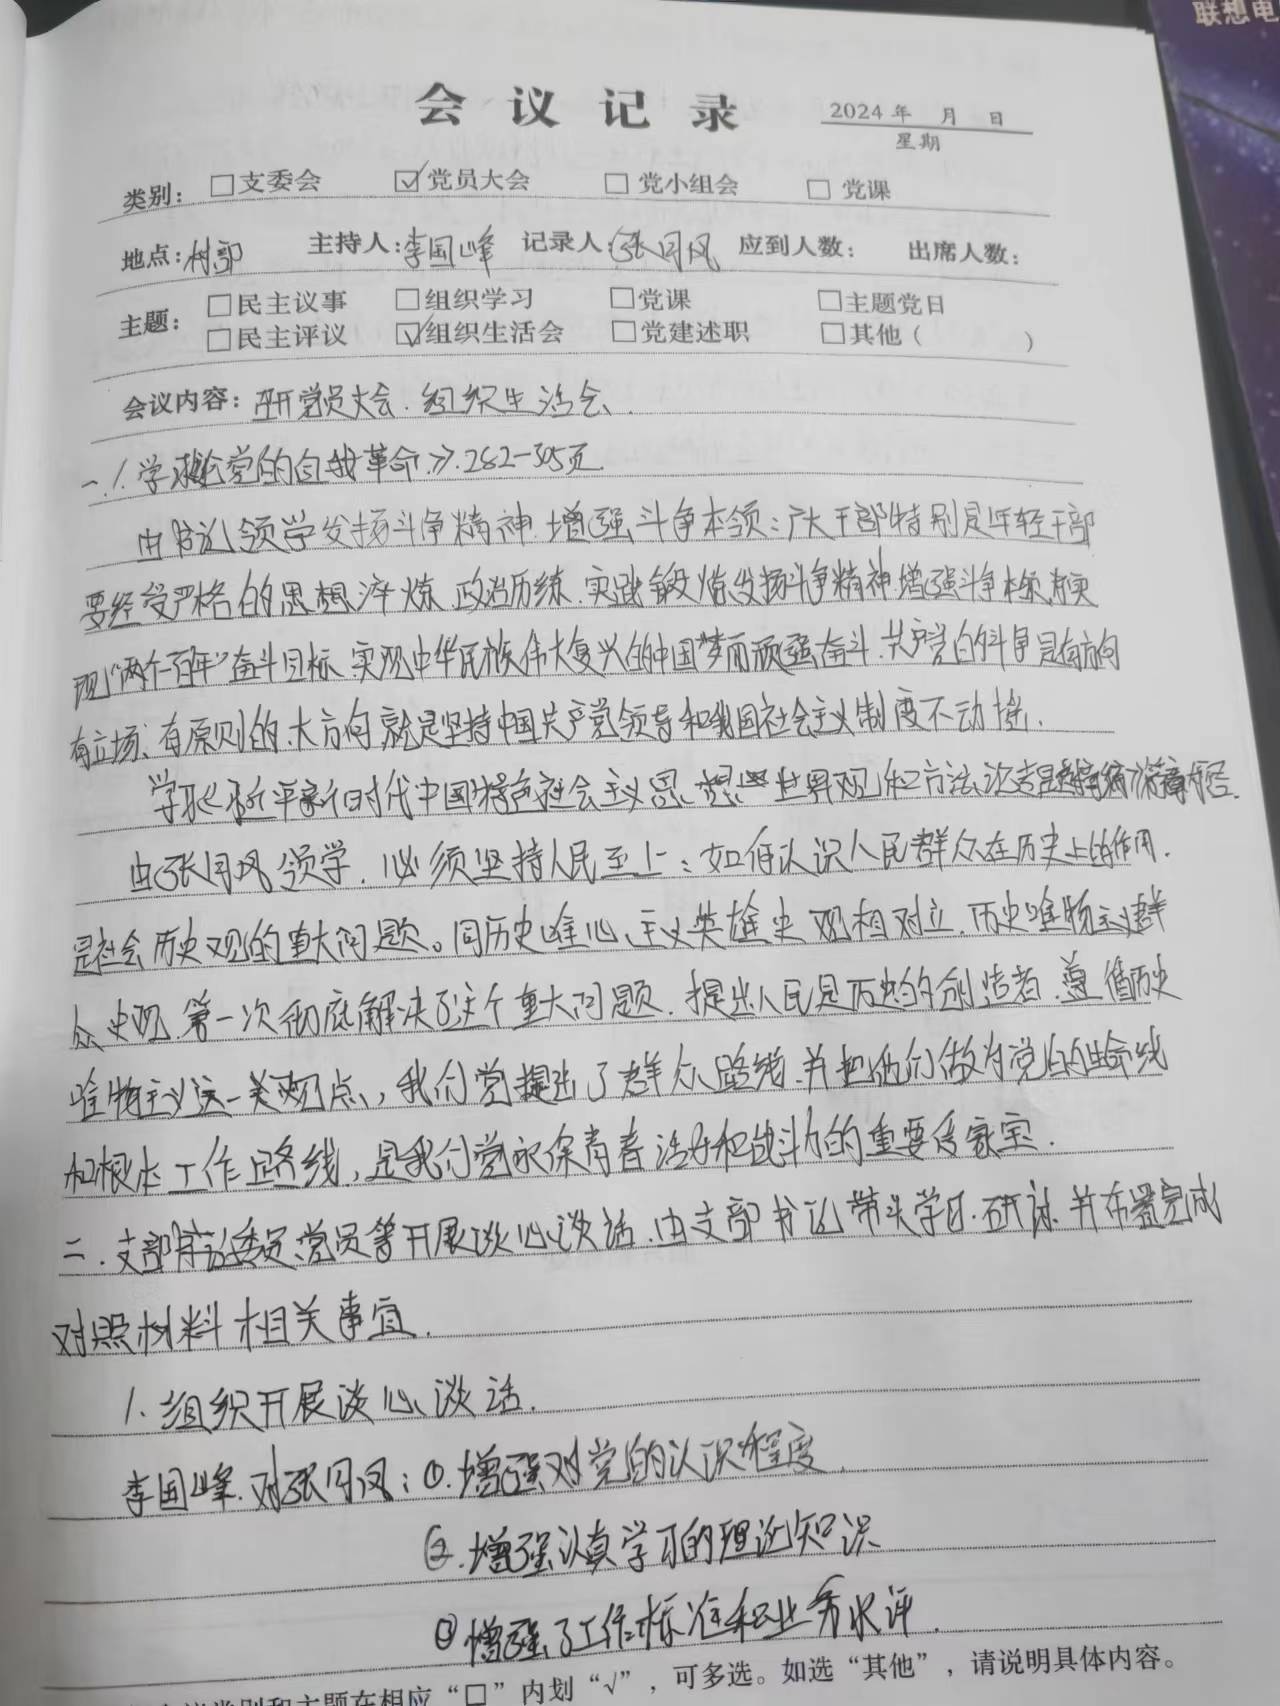 联想电
会议记录
2024年 月 日
星期
类别: □支委会 ☑党员大会 □党小组会 □党课
地点:村部 主持人:李国峰 记录人:张月凤 应到人数: 出席人数:
主题: □民主议事 □组织学习 □党课 □主题党日
□民主评议 ☑组织生活会 □党建述职 □其他( )
会议内容: 召开党员大会.组织生活会.
一.1.学习《论党的自我革命》.282-305页.
由书记领学发扬斗争精神.增强斗争本领:广大干部特别是年轻干部
要经受严格的思想淬炼.政治历练.实践锻炼,发扬斗争精神,增强斗争本领,为实
现"两个一百年"奋斗目标.实现中华民族伟大复兴的中国梦而顽强奋斗.共产党的斗争是有方向
有立场、有原则的.大方向就是坚持中国共产党领导和我国社会主义制度不动摇.
学习《习近平新时代中国特色社会主义思想的世界观和方法论
由张月凤领学.必须坚持人民至上:如何认识人民群众在历史上的作用.
是社会历史观的重大问题。同历史唯心主义英雄史观相对立.历史唯物主义群
众史观.第一次彻底解决了这个重大问题.提出人民是历史的创造者.遵循历史
唯物主义这一关观点,我们党提出了群众路线.并把他们做为党的生命线
和根本工作路线,是我们党永保青春活力和战斗力的重要传家宝.
二.支部书记委员、党员等开展谈心谈话.由支部书记带头学习.研讨.并布置完成
对照材料相关事宜.
1.组织开展谈心谈话.
李国峰.对张月凤:①.增强对党的认识程度.
②.增强认真学习的理论知识
③增强了工作标准和业务水评.
类别和主题在相应“□”内划“√”,可多选。如选“其他”,请说明具体内容。